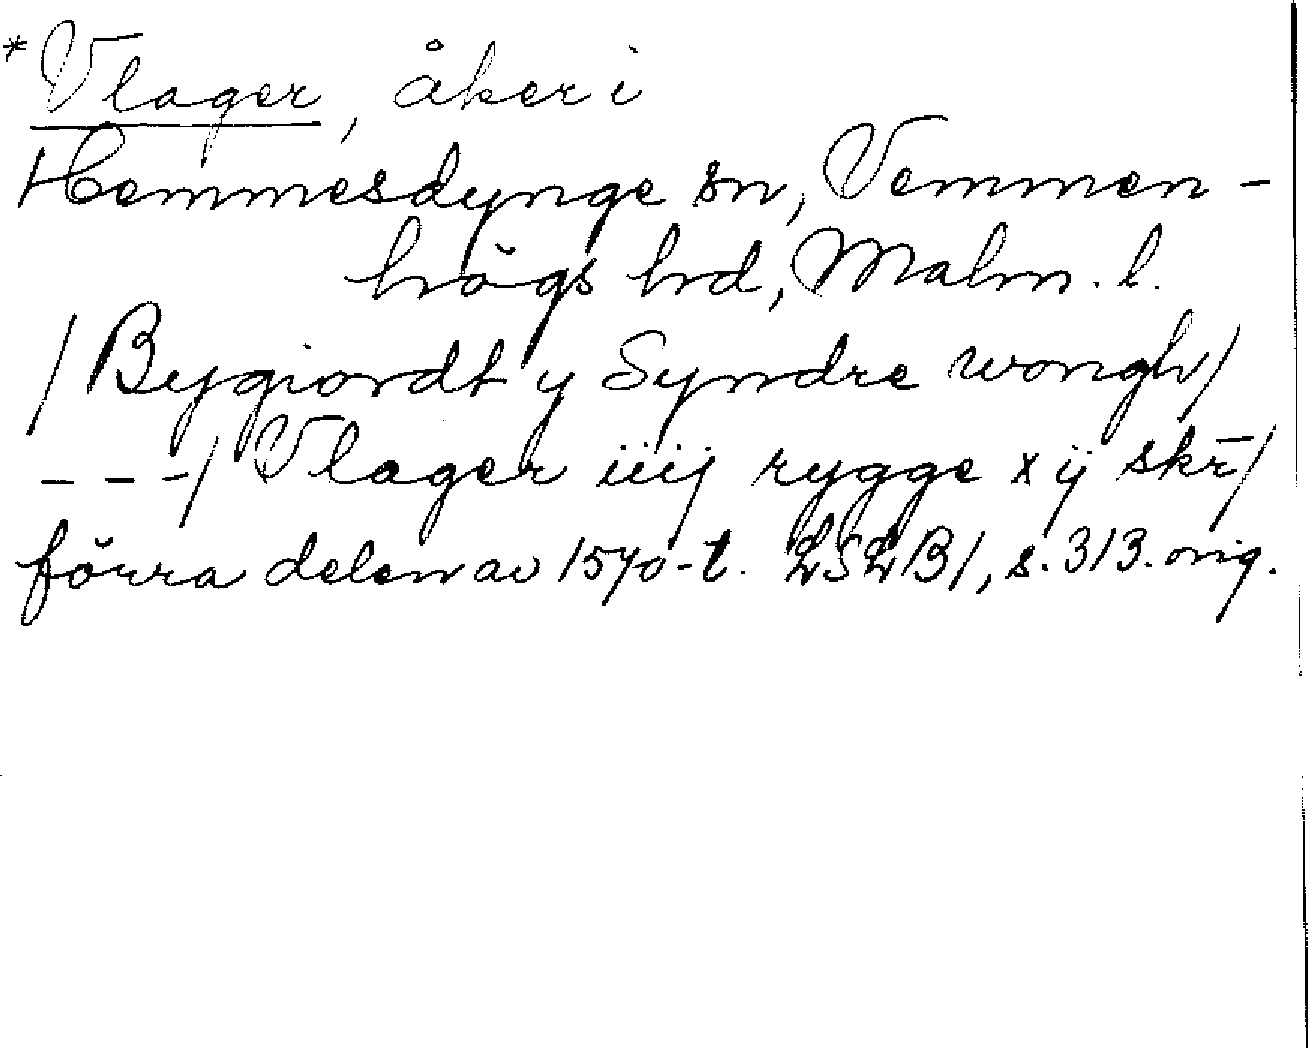 *Vlager, åker i
Hemmesdynge sn, Vemmen-
högs hd, Malm. l.
/ Bygiordt y Syndre wongh/
---/ Vlager iiij rygge x ij skr̄/
förra delen av 1570-t. LSLB1, s. 313. orig.